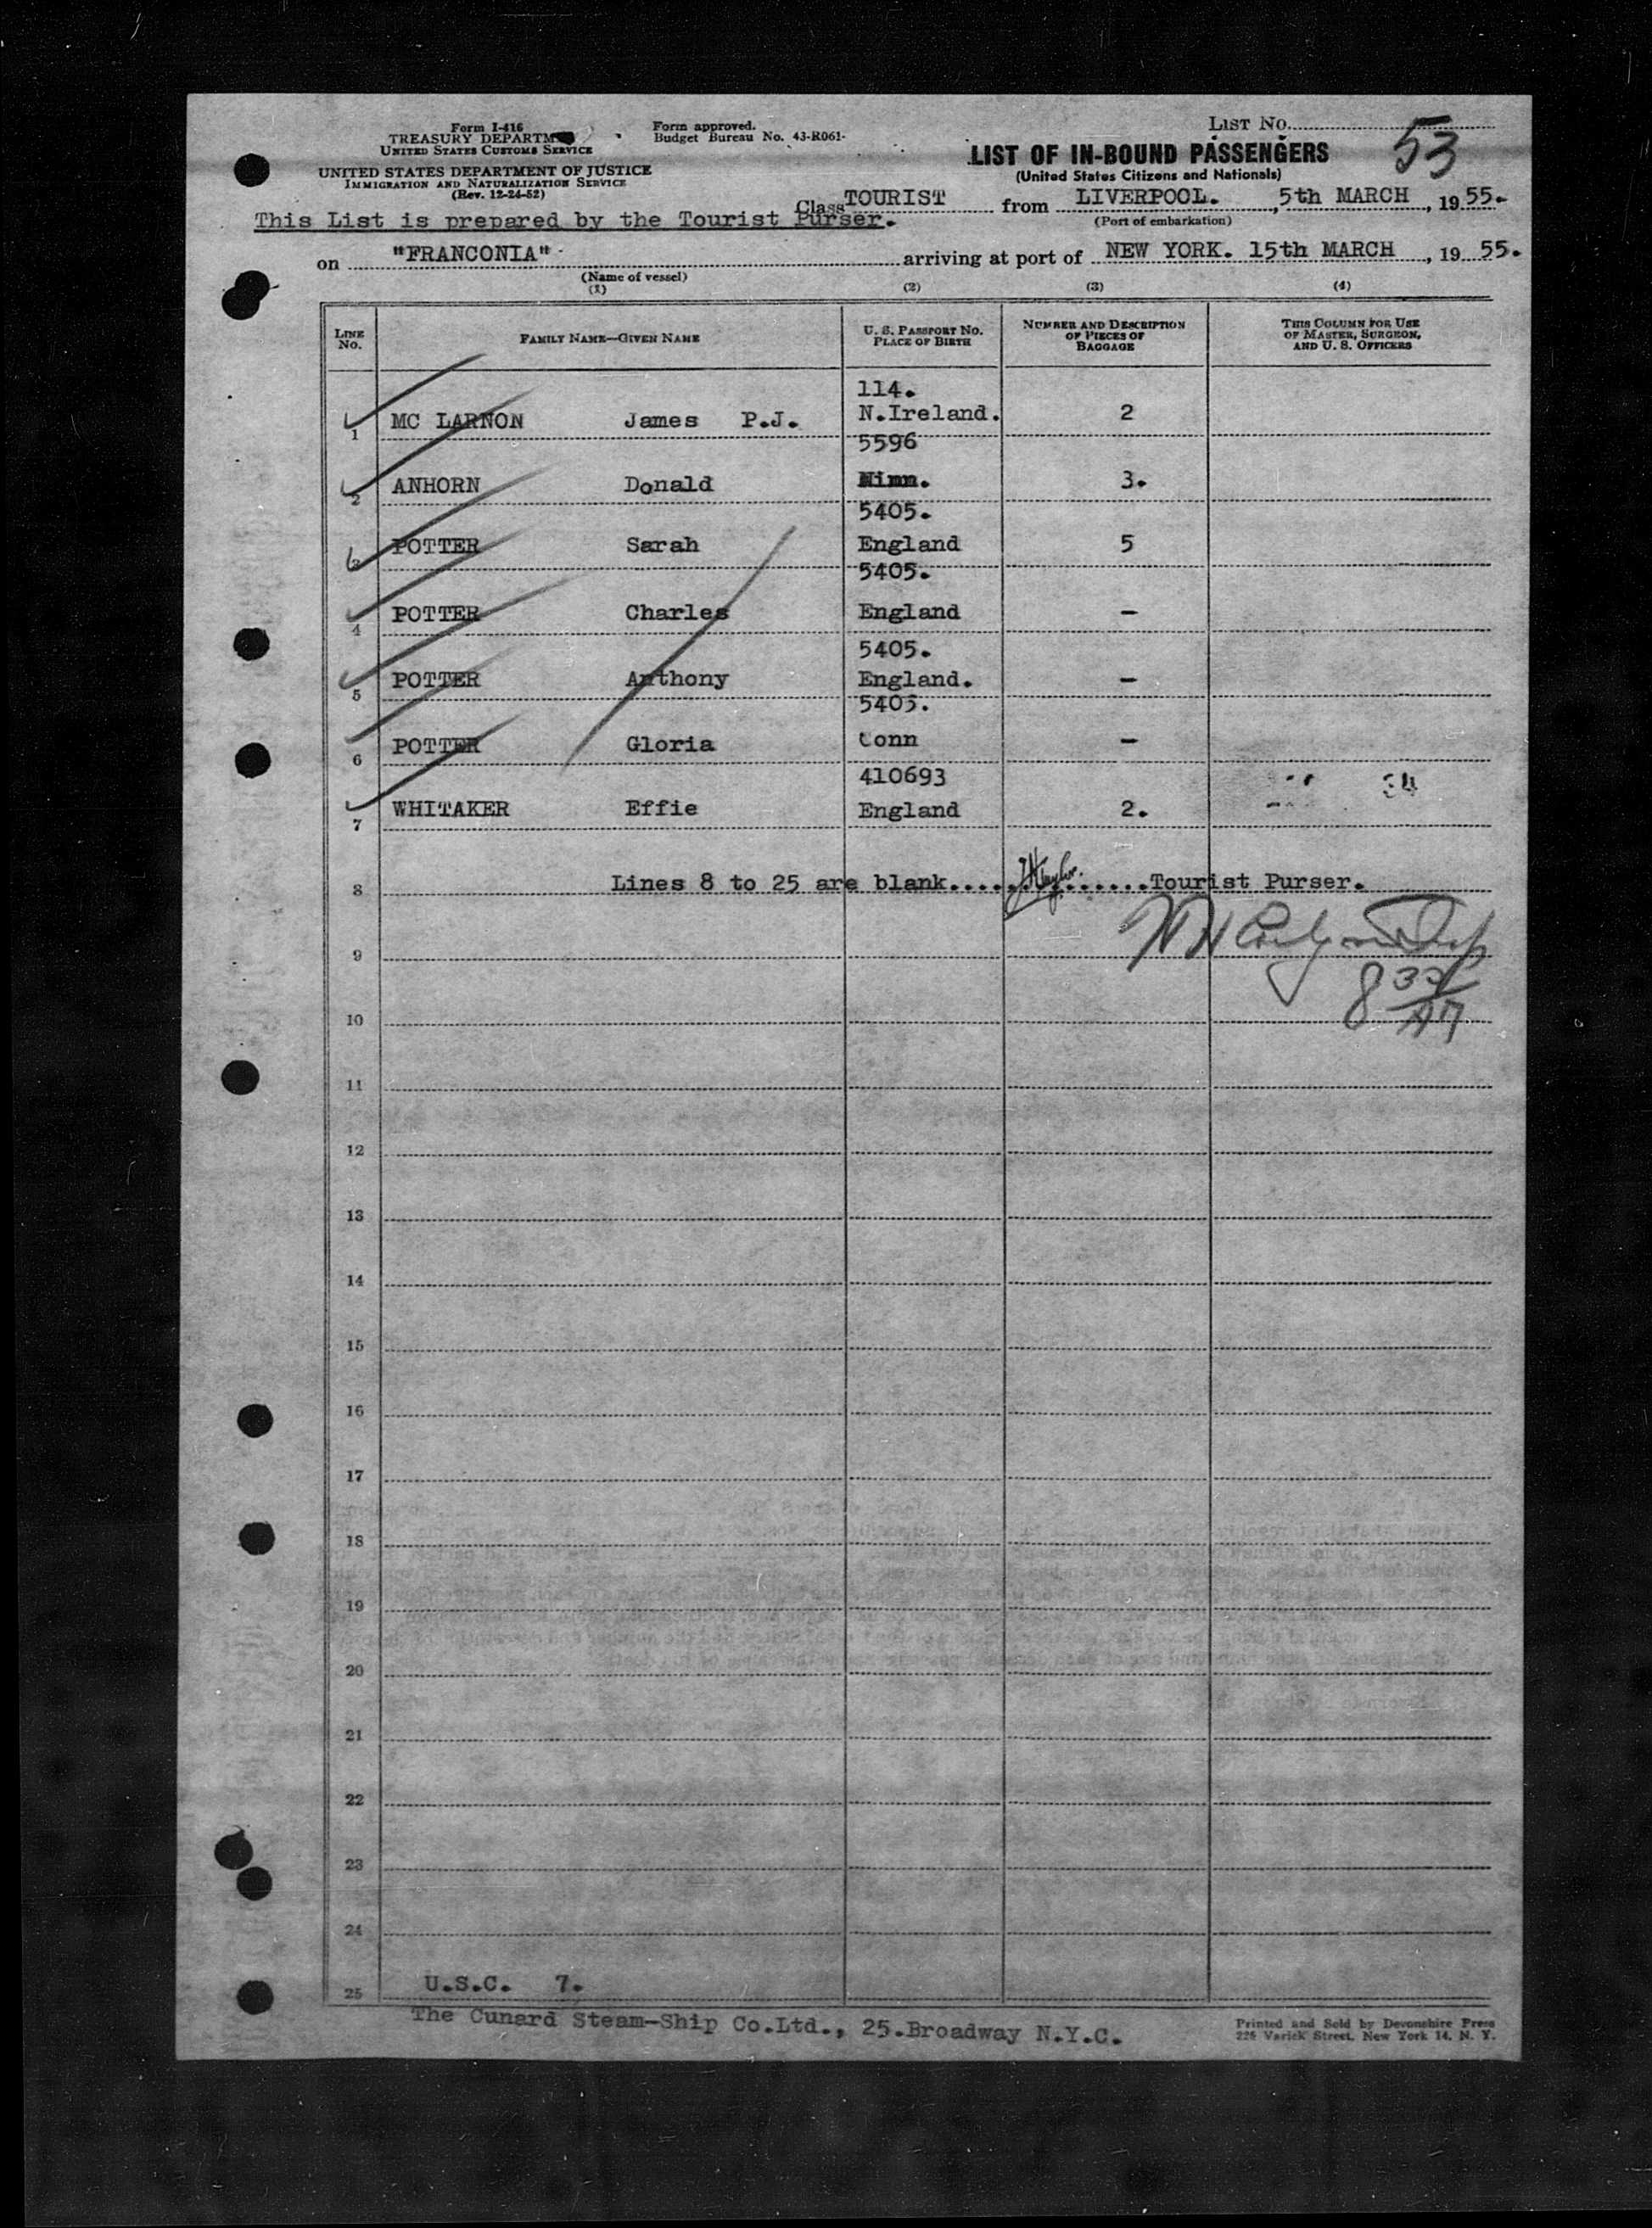 Form I-416
TREASURY DEPARTM
UNITED STATES CUSTOMS SERVICE
UNITED STATES DEPARTMENT OF JUSTICE
IMMIGRATION AND NATURALIZATION SERVICE
(Rev. 12-24-52)
Form approved.
Budget Bureau No. 43-R061-
LIST No.
53
LIST OF IN-BOUND PASSENGERS
(United States Citizens and Nationals)
This List is prepared by the Tourist Purser.
Class TOURIST from LIVERPOOL. , 5th MARCH , 19 55.
(Port of embarkation)
on "FRANCONIA" arriving at port of NEW YORK. 15th MARCH , 19 55.
(Name of vessel)
(1) (2) (3) (4)
LINE No. FAMILY NAME—GIVEN NAME U. S. PASSPORT NO. PLACE OF BIRTH NUMBER AND DESCRIPTION OF PIECES OF BAGGAGE THIS COLUMN FOR USE OF MASTER, SURGEON, AND U. S. OFFICERS
114.
1 MC LARNON James P.J. N.Ireland. 2
5596
2 ANHORN Donald Minn. 3.
5405.
3 POTTER Sarah England 5
5405.
4 POTTER Charles England -
5405.
5 POTTER Anthony England. -
5405.
6 POTTER Gloria Conn -
410693
7 WHITAKER Effie England 2.
8 Lines 8 to 25 are blank...........Tourist Purser.
9
8 30/AM
10
11
12
13
14
15
16
17
18
19
20
21
22
23
24
25 U.S.C. 7.
The Cunard Steam-Ship Co.Ltd., 25.Broadway N.Y.C.
Printed and Sold by Devonshire Press
226 Varick Street, New York 14, N. Y.